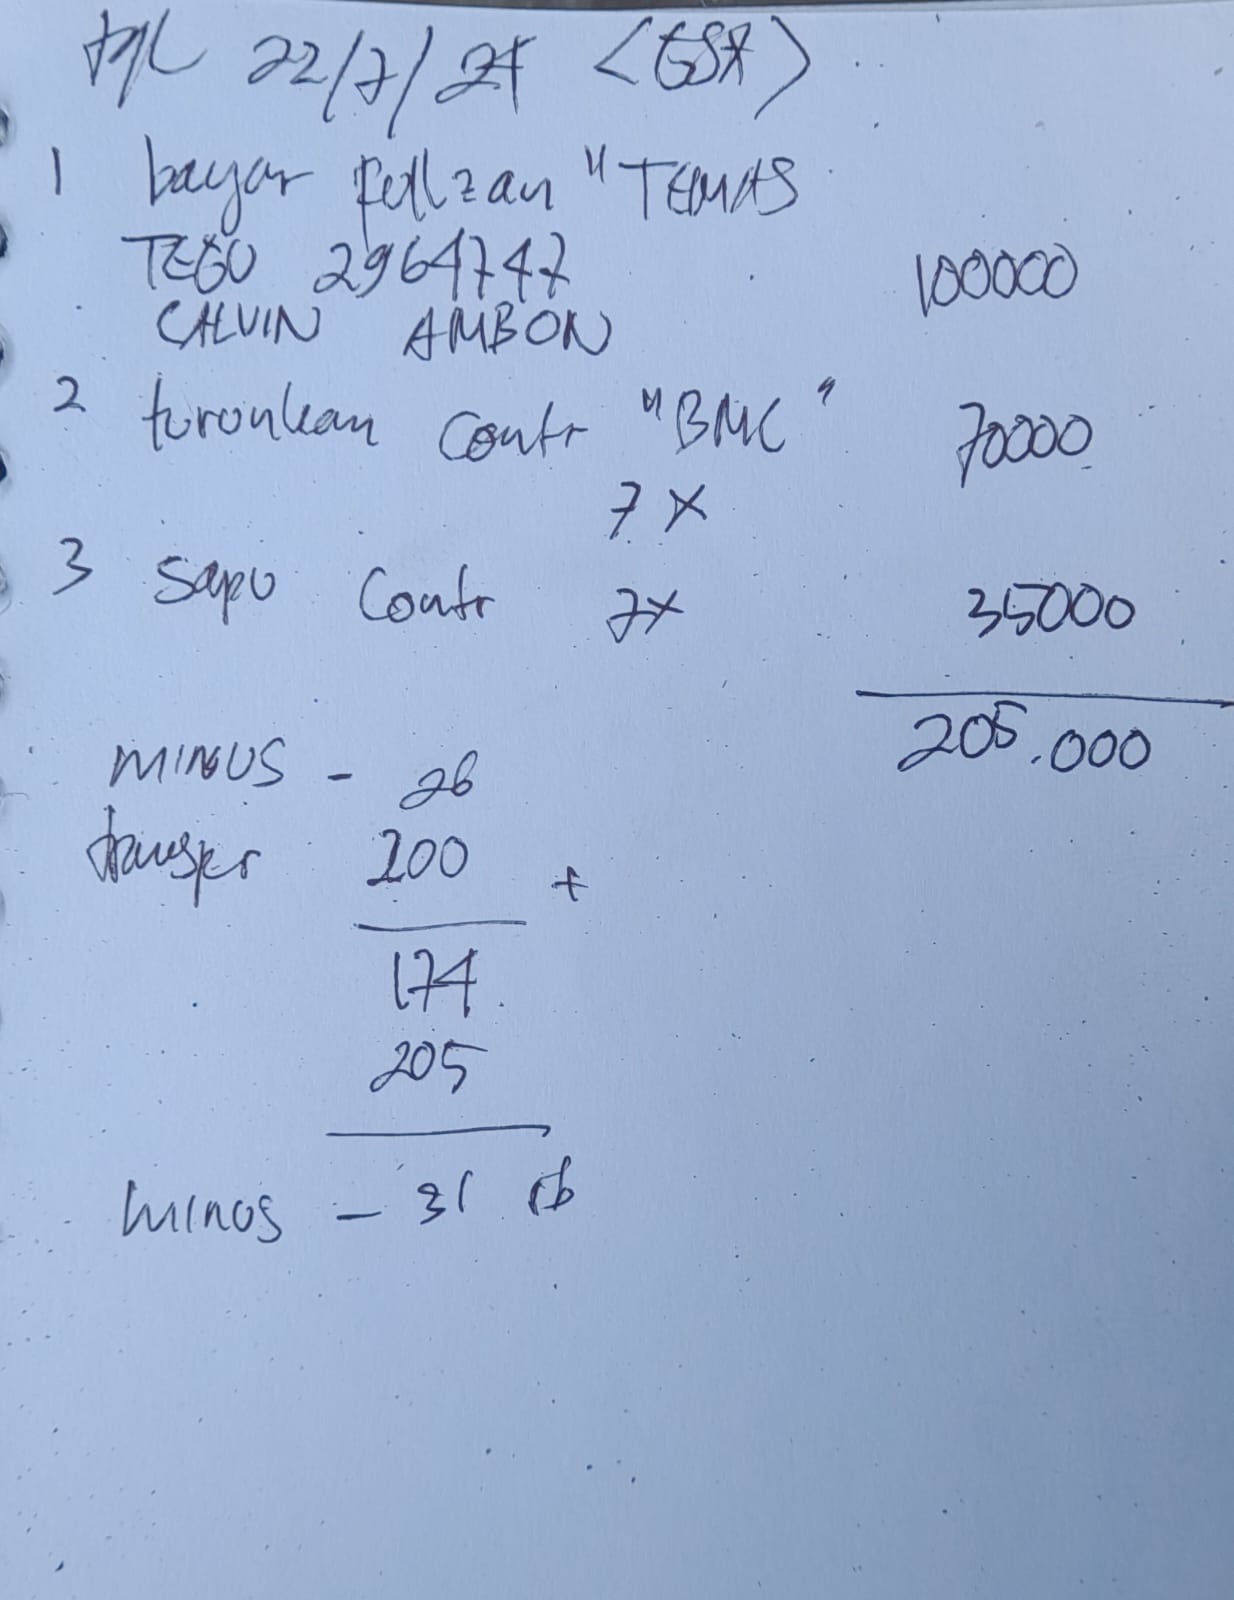 tgl 22/7/24 <GSA>
1 bayar fullzan "TEMAS
TEGU 2964747 100000
CALVIN AMBON
2 turunkan Contr "BMC" 70000
7 X
3 Sapu Contr 7X 35000
205.000
MINUS - 26
transper 200 +
174
205
MINUS - 31 rb